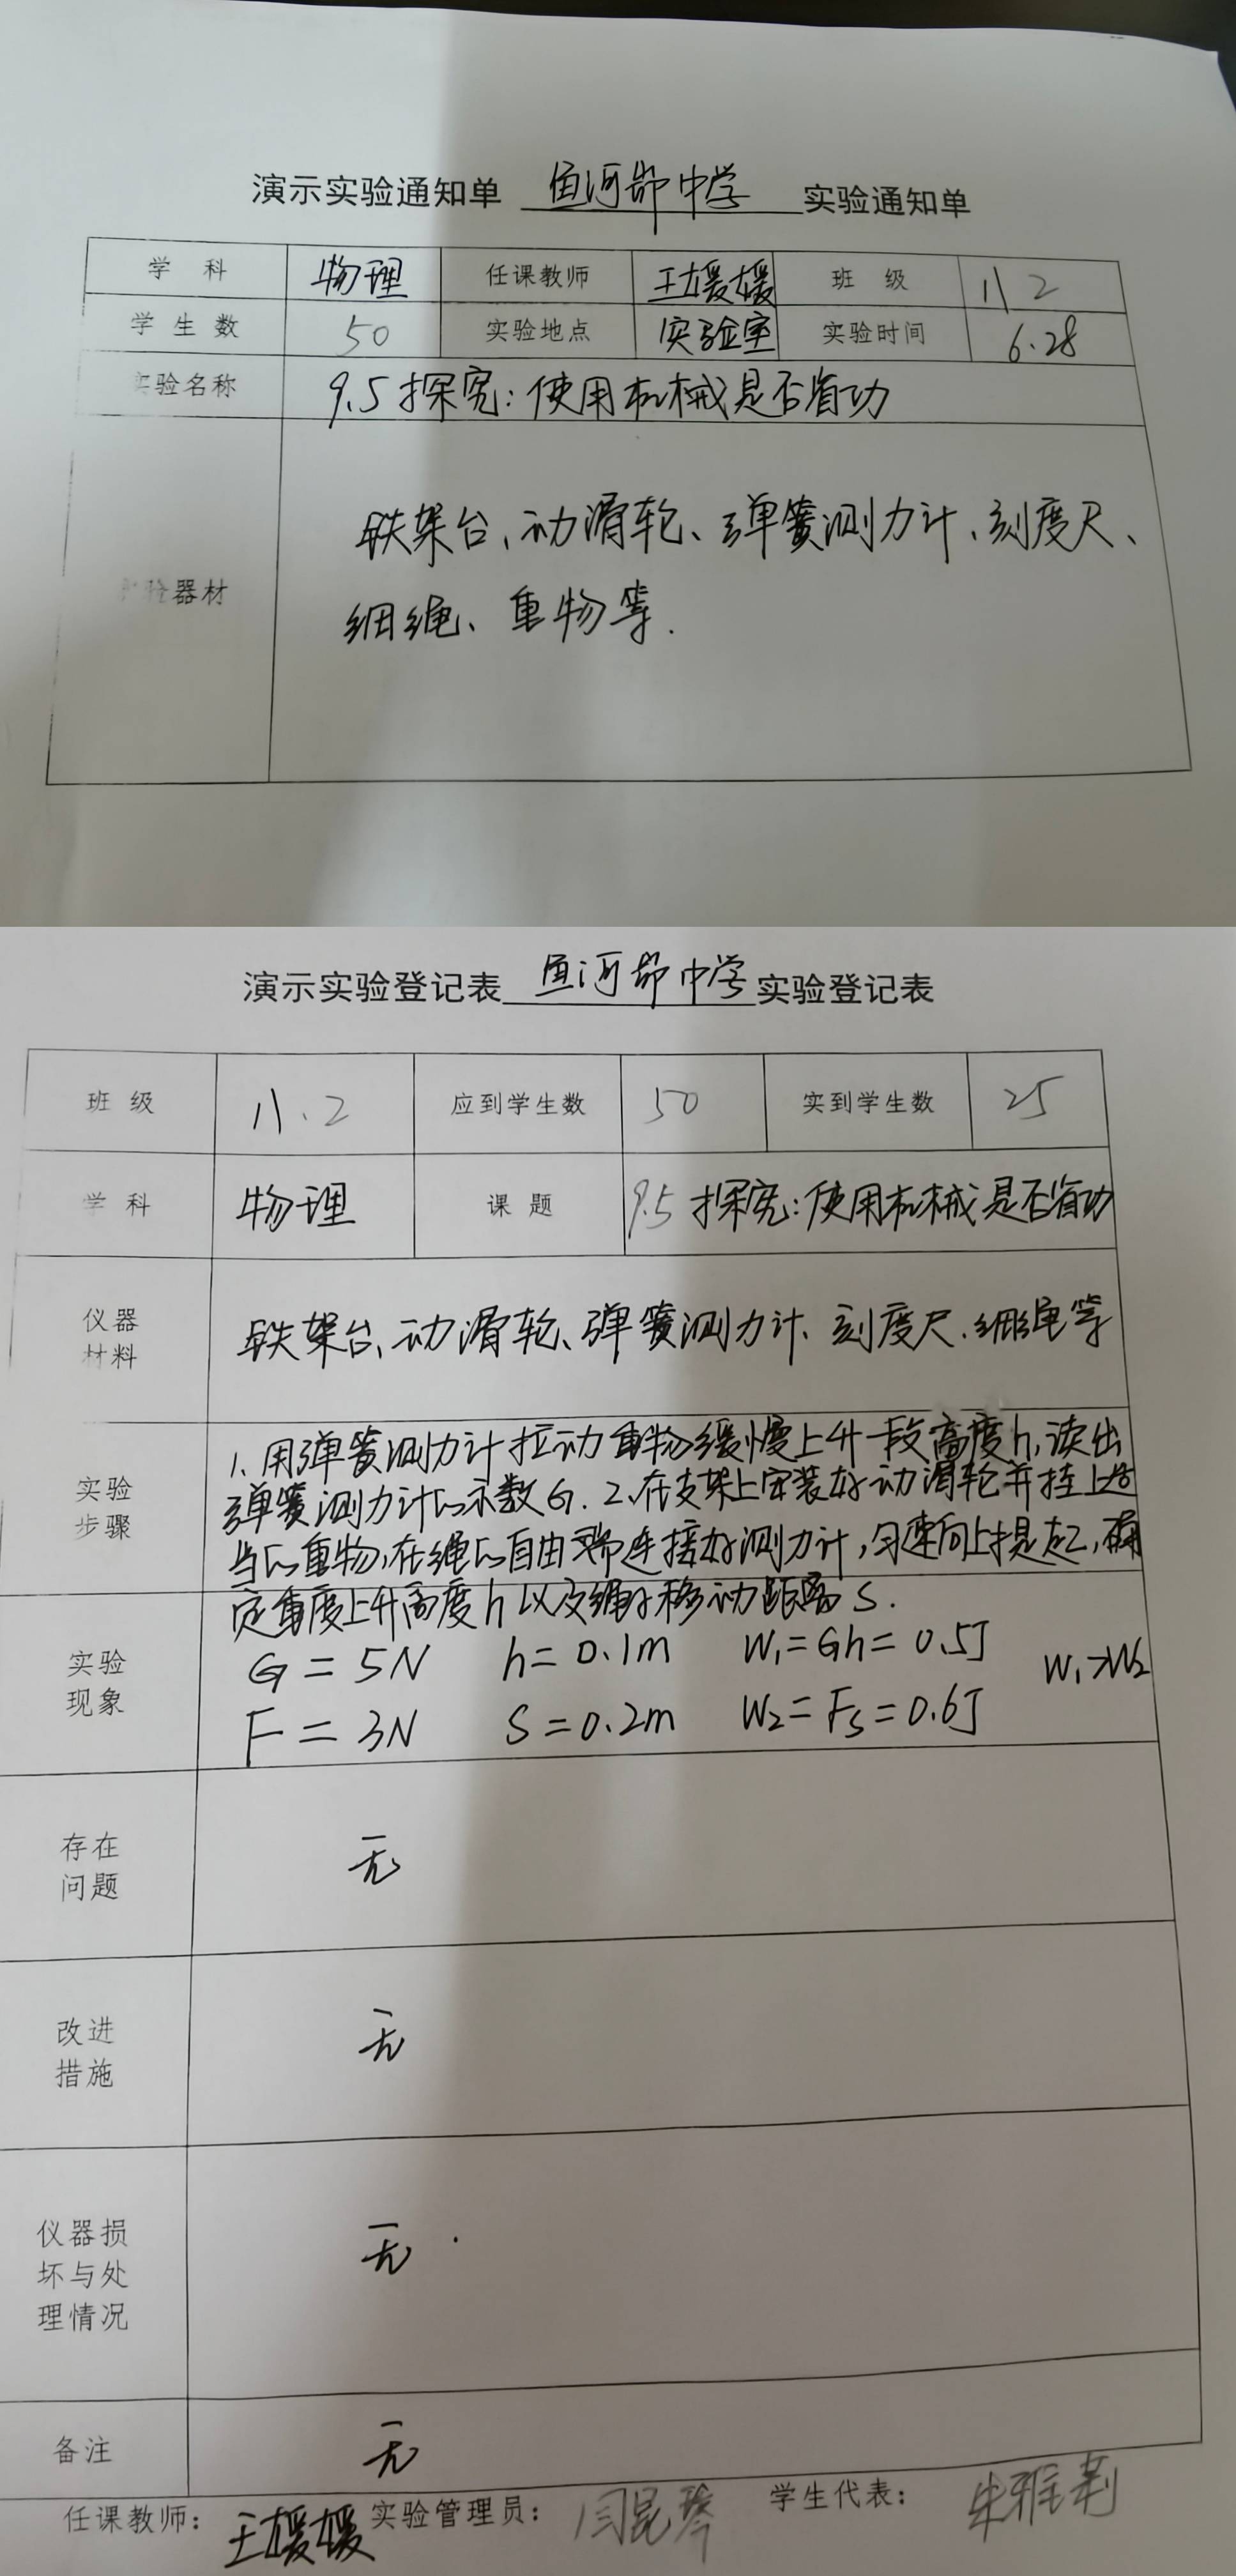 演示实验通知单 鱼河峁中学 实验通知单
学 科 物理 任课教师 王媛媛 班 级 八 2
学 生 数 50 实验地点 实验室 实验时间 6.28
实验名称 9.5探究:使用机械是否省功
实验器材
铁架台、动滑轮、弹簧测力计、刻度尺、
细绳、重物等.
演示实验登记表 鱼河峁中学 实验登记表
班 级 八.2 应到学生数 50 实到学生数 25
学 科 物理 课 题 9.5探究:使用机械是否省功
仪器
材料
铁架台、动滑轮、弹簧测力计、刻度尺、细绳等
实验
步骤
1.用弹簧测力计拉动重物缓慢上升一段高度h,读出
弹簧测力计的示数G. 2.在支架上安装好动滑轮并挂上适
当的重物,在绳的自由端连接好测力计,匀速向上提起,确
定重度上升高度h以及绳子移动距离S.
实验
现象
G=5N h=0.1m W₁=Gh=0.5J W₁>W₂
F=3N S=0.2m W₂=Fs=0.6J
存在
问题
无
改进
措施
无
仪器损
坏与处
理情况
无.
备注 无
任课教师: 王媛媛 实验管理员: 闫昆琴 学生代表: 朱雅莉